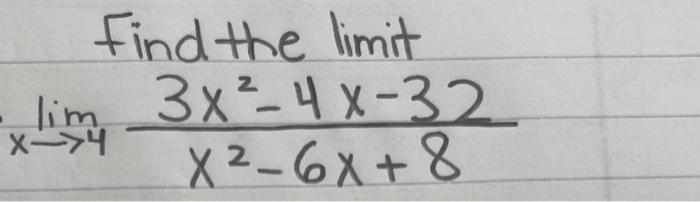 find the limit
lim x→4 (3x²-4x-32)/(x²-6x+8)